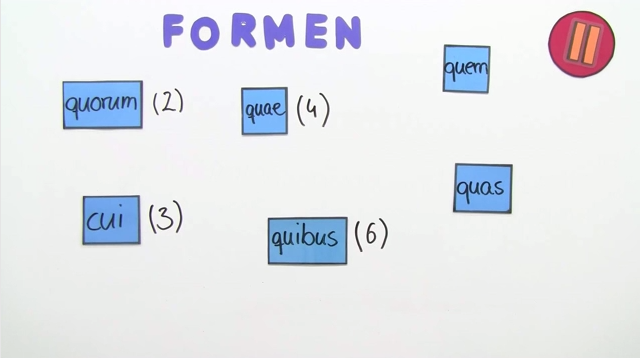 FORMEN
quem
quorum (2)
quae (4)
quas
cui (3)
quibus (6)